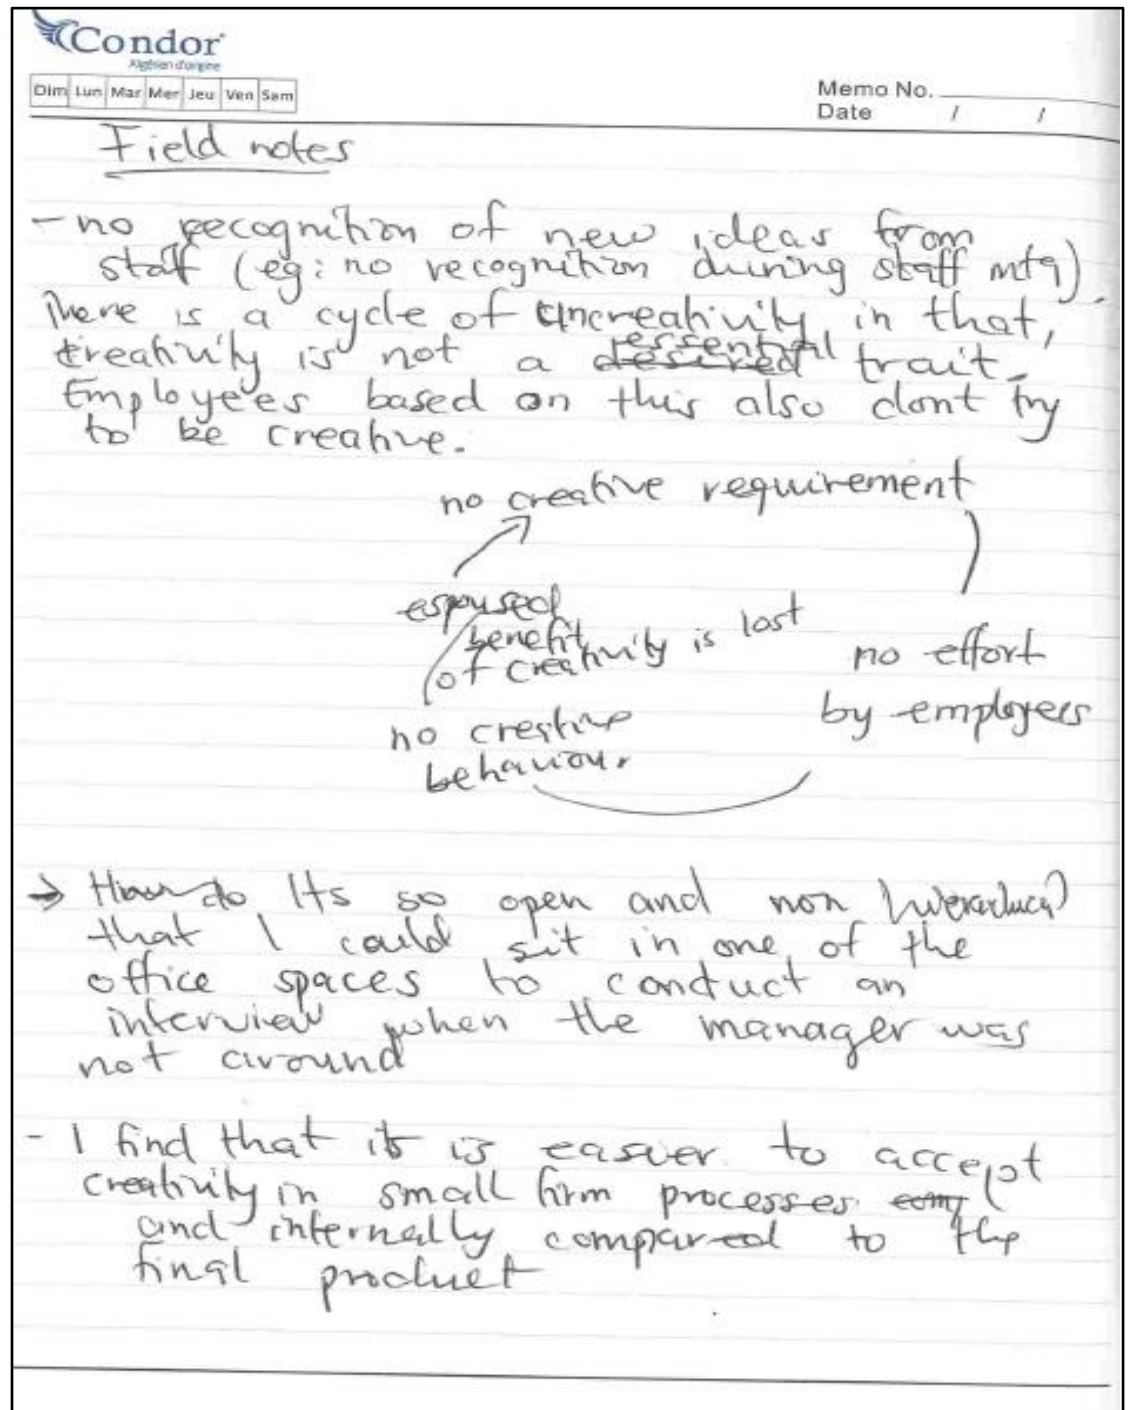 Condor
Algérien d'origine
Dim Lun Mar Mer Jeu Ven Sam
Memo No.
Date / /
Field notes
- no recognition of new ideas from
staff (eg: no recognition during staff mtg).
There is a cycle of uncreativity in that,
creativity is not a desired essential trait.
Employees based on this also dont try
to be creative.
no creative requirement
espoused
benefit
of creativity is lost
no effort
by employees
no creative
behaviour.
→ How do Its so open and non hierarchical
that I could sit in one of the
office spaces to conduct an
interview when the manager was
not around
- I find that its is easier to accept
creativity in small firm processes
and internally compared to the
final product